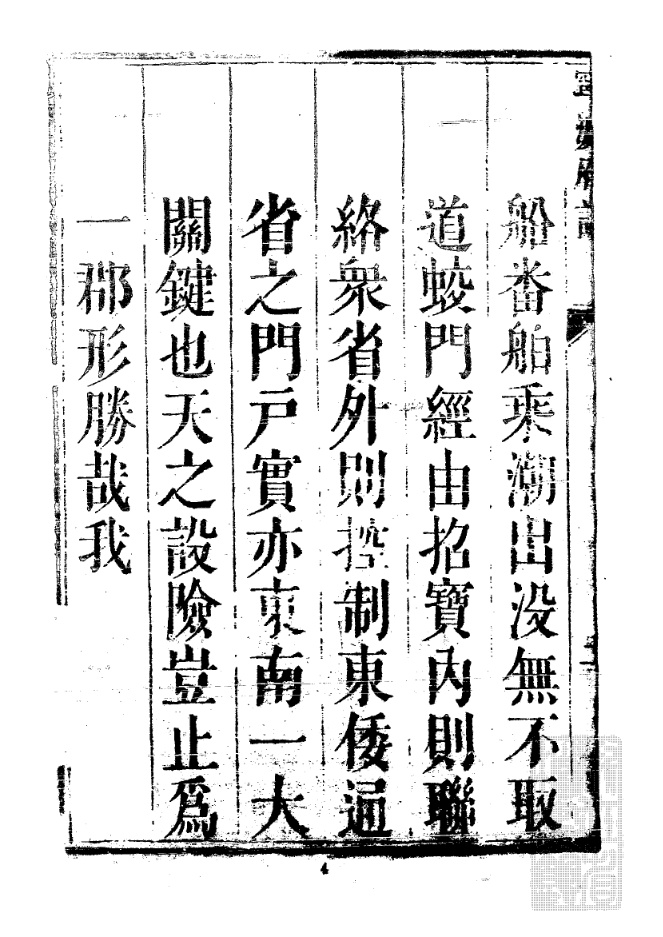 船番舶乘潮出没無不取
道蛟門經由招寶内則聯
絡衆省外則控制東倭通
省之門戸實亦東南一大
關鍵也天之設險豈止爲
一郡形勝哉我
4